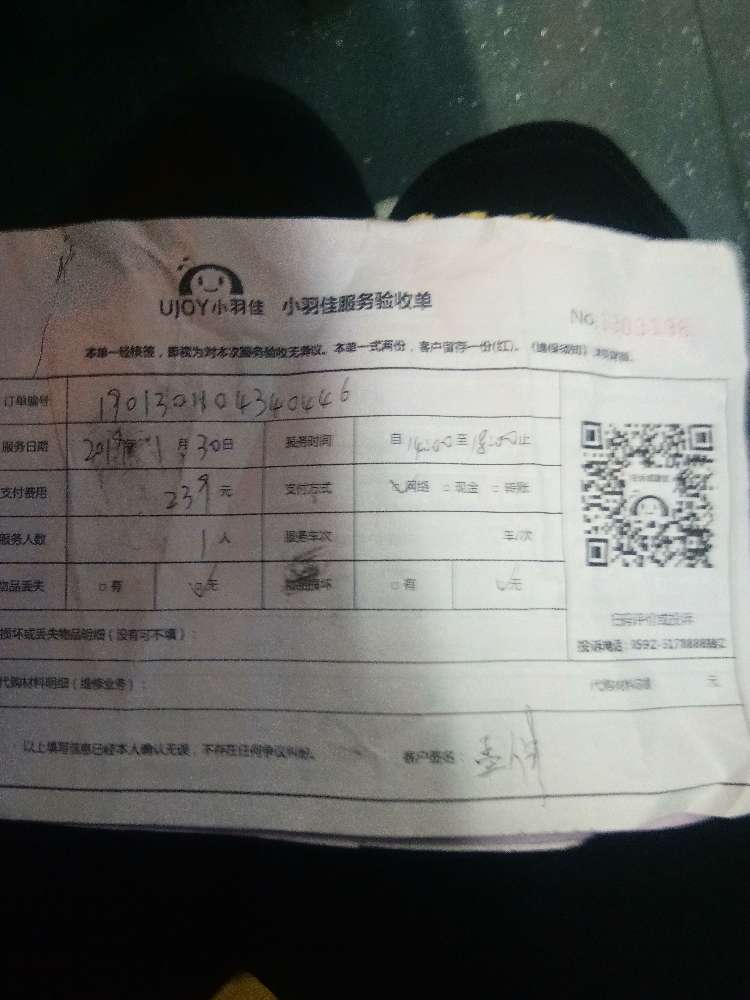 UJOY小羽佳 小羽佳服务验收单
No
本单一经核签，即视为对本次服务验收无异议。本单一式两份，客户留存一份(红)。《维保须知》
订单编号 1901301104340446
服务日期 2019年1月30日 服务时间 自14:00至18:00止
支付费用 239元 支付方式 网络 □现金 □转账
服务人数 1人 服务车次 车/次
物品丢失 □有 □无 物品损坏 □有 □无
扫码评价或投诉
损坏或丢失物品明细（没有可不填）：
投诉电话：0592-
代购材料明细（维修业务）： 代购材料 元
以上填写信息已经本人确认无误，不存在任何争议纠纷。 客户签名：